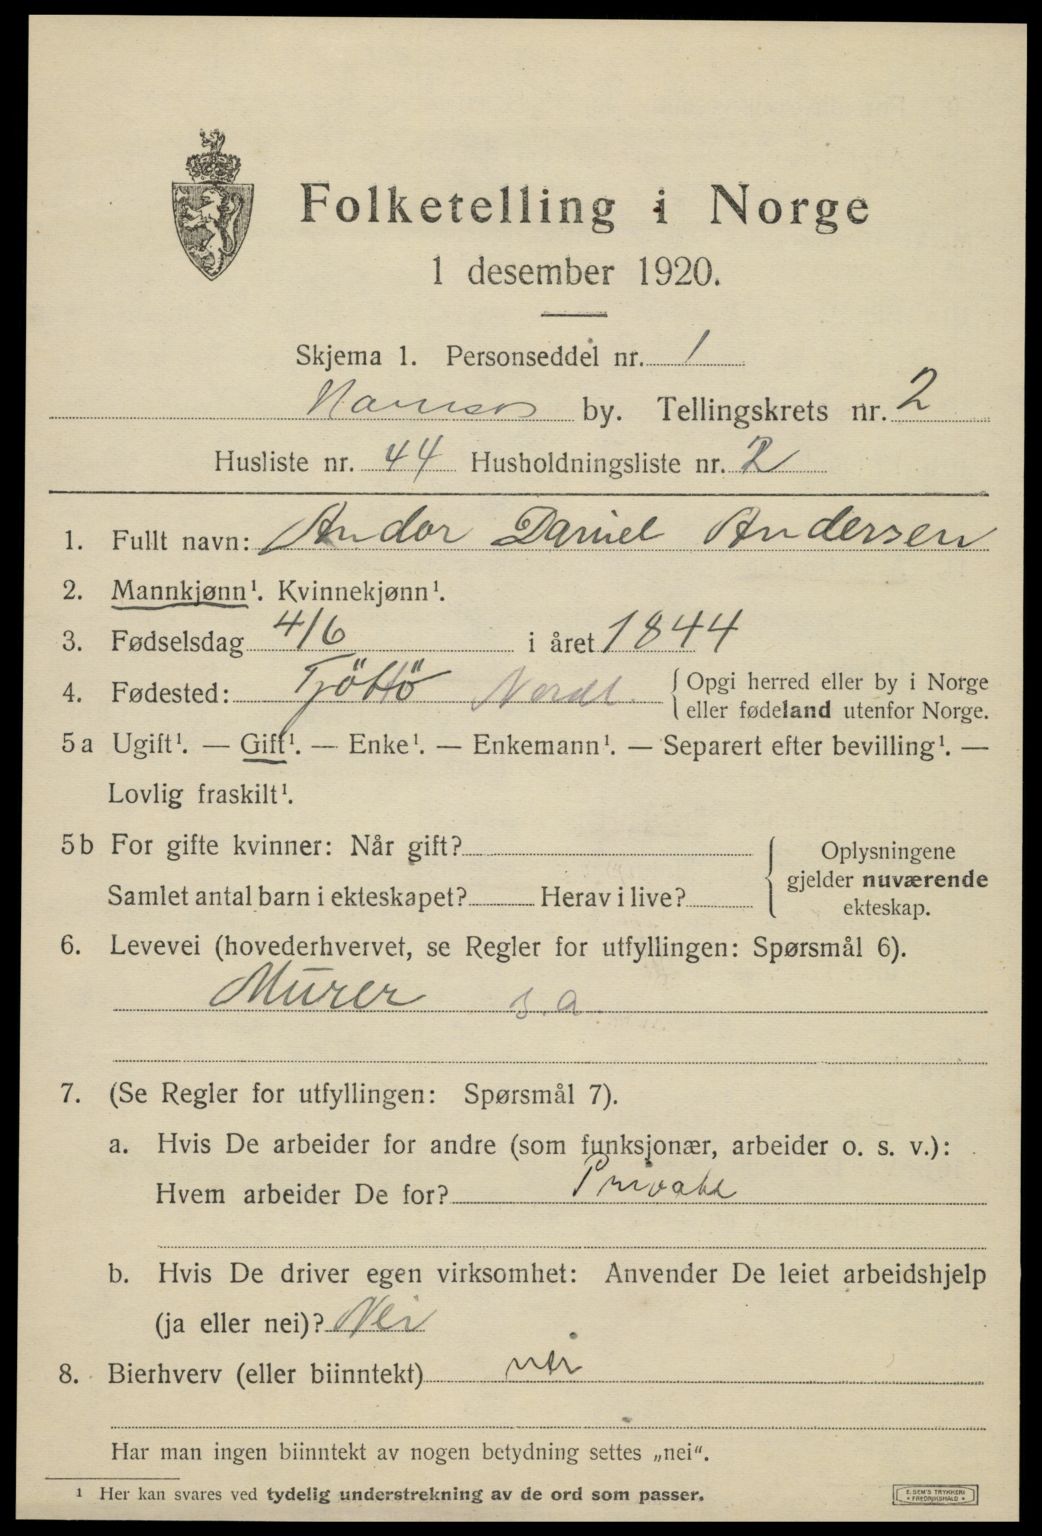 Folketelling i Norge
1 desember 1920.
Skjema 1. Personseddel nr. 1
Namsos by. Tellingskrets nr. 2
Husliste nr. 44 Husholdningsliste nr. 2
1. Fullt navn: Andor Daniel Andersen
2. Mannkjønn¹. Kvinnekjønn¹.
3. Fødselsdag 4/6 i året 1844
4. Fødested: Tjöttö Nordl. { Opgi herred eller by i Norge
eller fødeland utenfor Norge.
5a Ugift¹. — Gift¹. — Enke¹. — Enkemann¹. — Separert efter bevilling¹. —
Lovlig fraskilt¹.
5b For gifte kvinner: Når gift?
Samlet antal barn i ekteskapet? Herav i live?
Oplysningene
gjelder nuværende
ekteskap.
6. Levevei (hovederhvervet, se Regler for utfyllingen: Spørsmål 6).
Murer s.a.
7. (Se Regler for utfyllingen: Spørsmål 7).
a. Hvis De arbeider for andre (som funksjonær, arbeider o. s. v.):
Hvem arbeider De for? Privatd
b. Hvis De driver egen virksomhet: Anvender De leiet arbeidshjelp
(ja eller nei)? Nei
8. Bierhverv (eller biinntekt) nei
Har man ingen biinntekt av nogen betydning settes „nei".
¹ Her kan svares ved tydelig understrekning av de ord som passer.
E. SEM'S TRYKKERI
FREDRIKSHALD